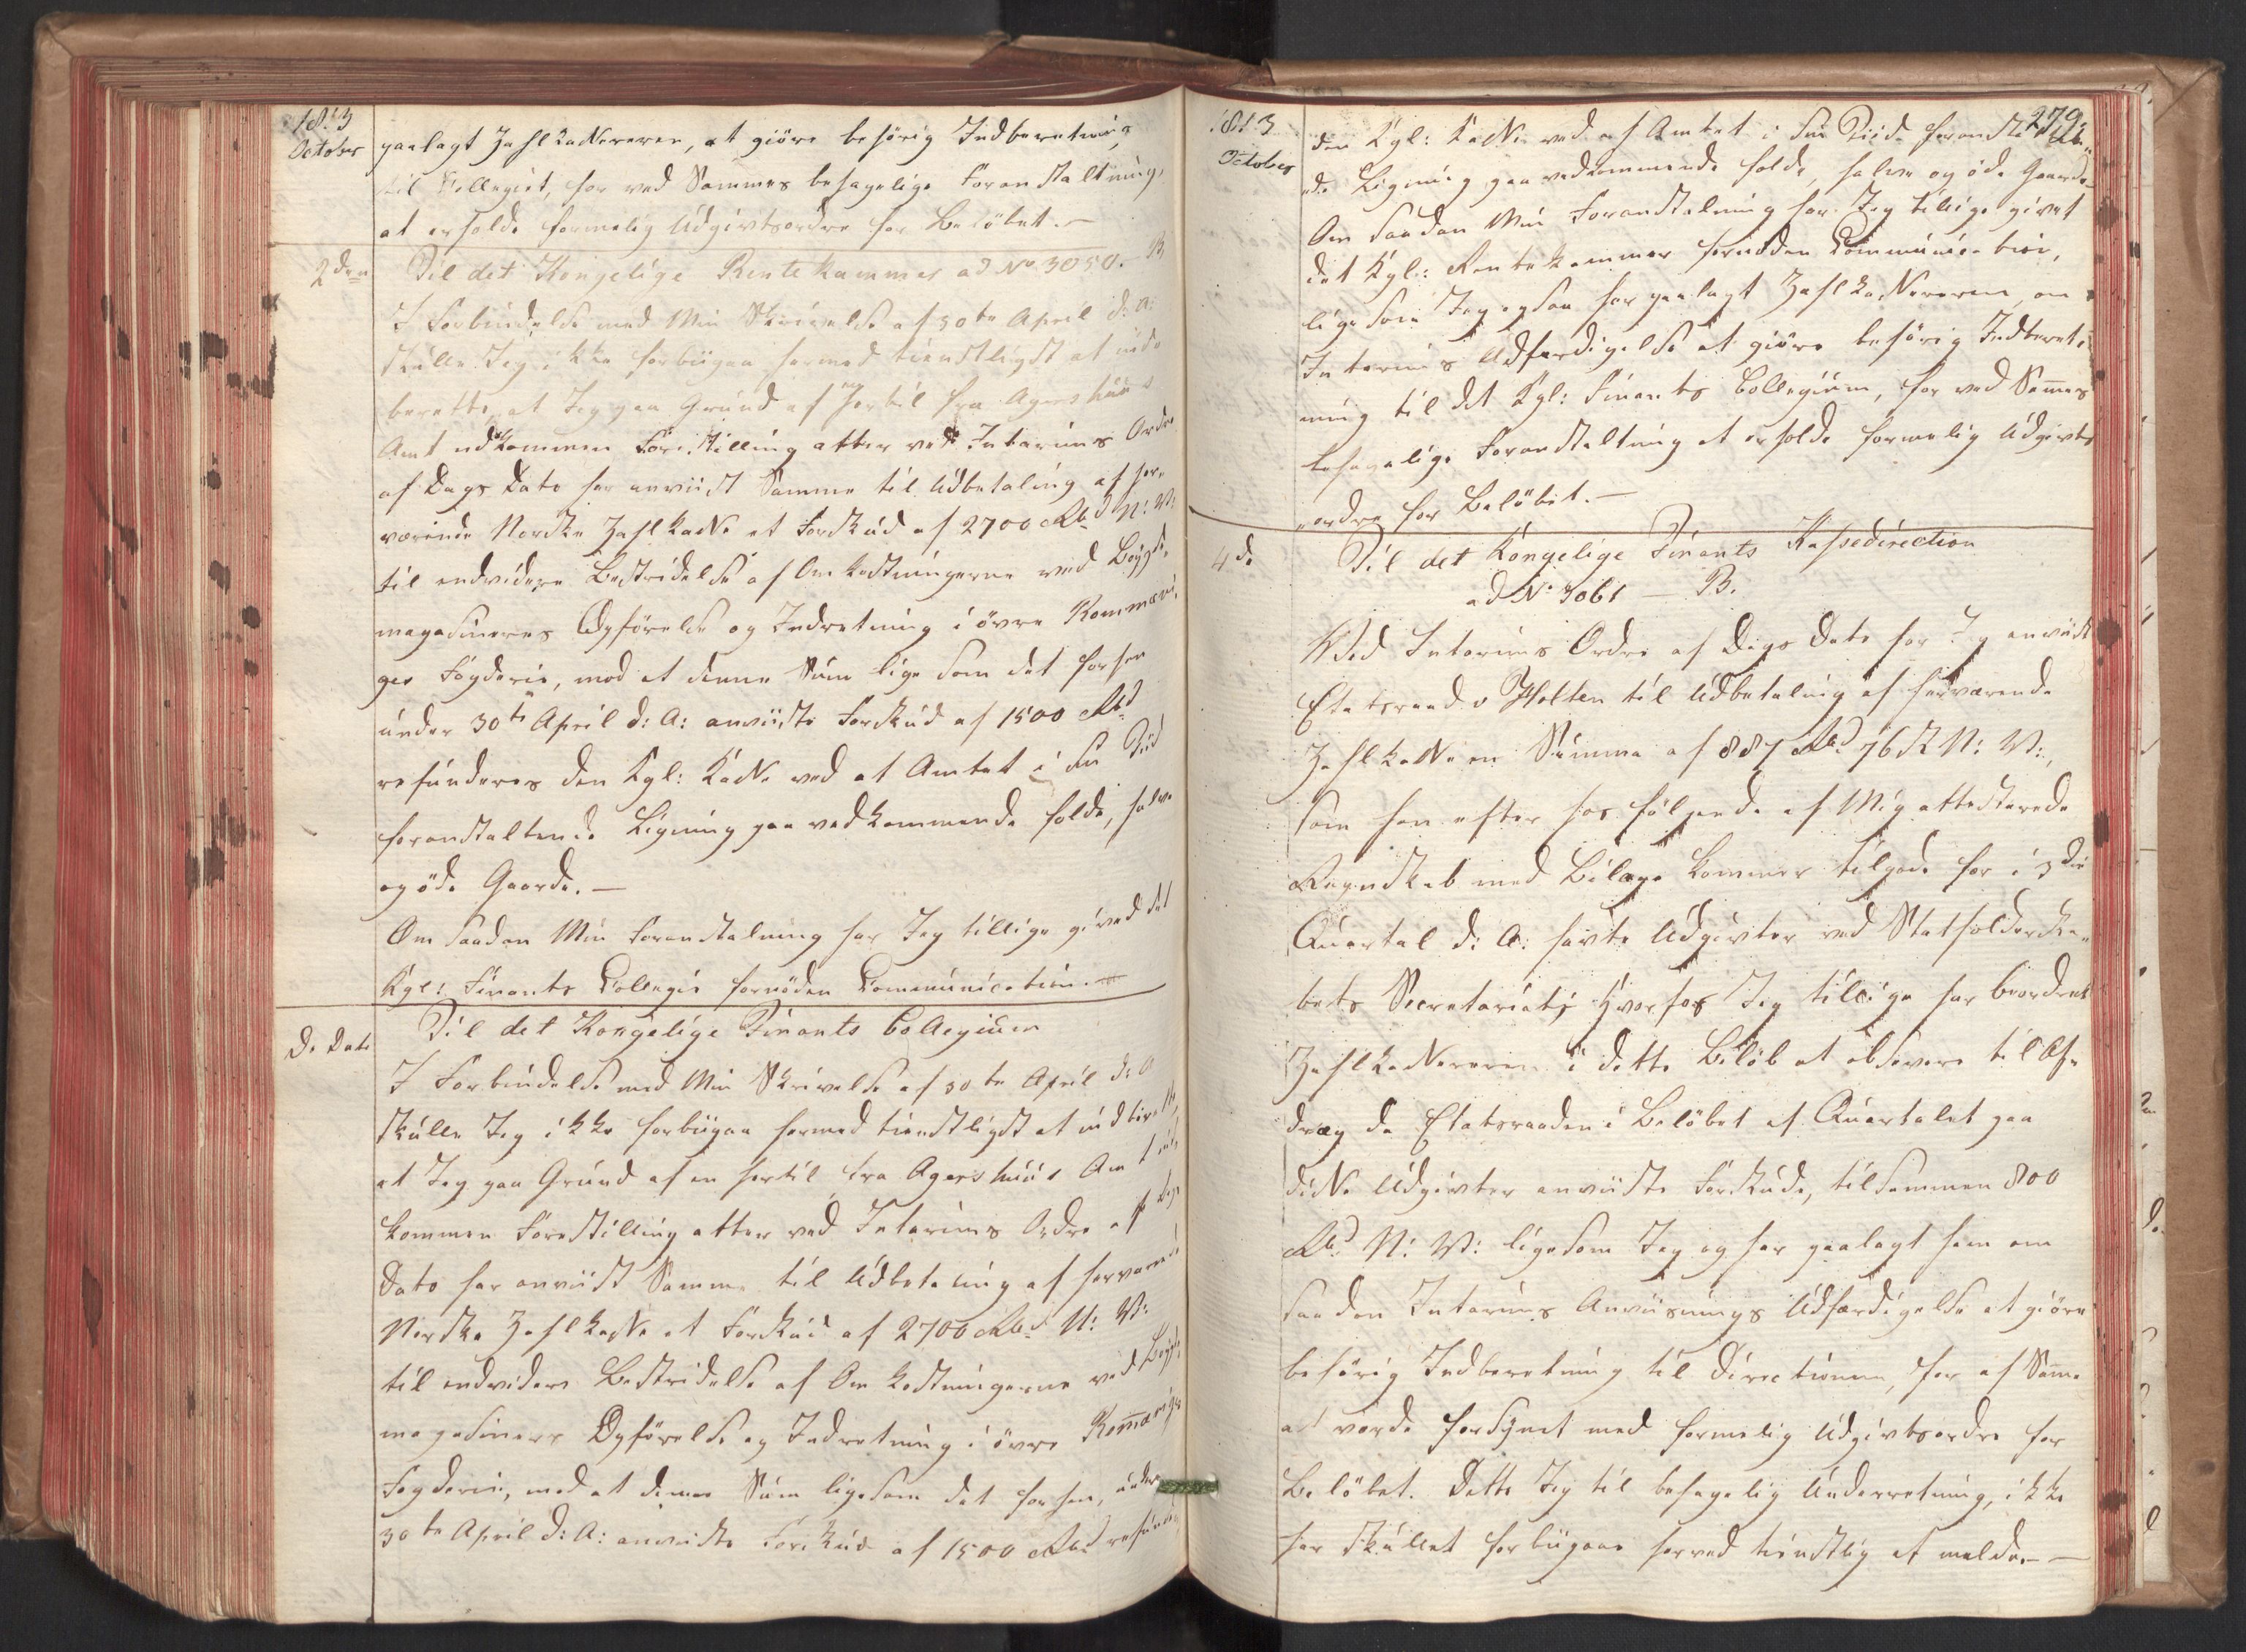 1813
October
paalagt Zahlkassereren, at giöre behörig Indberetning
til Collegiet, for ved Sammes behagelige Foranstaltning,
at erholde formelig Udgivtsordre for Belöbet. —
2den
Til det Kongelige Rentekammer ad No 3050. B
I Forbindelse med Min Skrivelse af 30te April d: A:
skulle Jeg ikke forbiigaae hermed tienstligst at inde
berette, at Jeg paa Grund af hertil fra Agershuus
Amt indkommen Forestilling atter ved Interims Ordre
af Dags Dato har anviist Samme til Udbetaling af her„
værende Norske Zahlkasse et Forskud af 2700 Rbd N: V:
til endvidere Bestridelse af Omkostningerne ved Böygde„
magasiners Opförelse og Indretning i övre Rommeri„
ges Fogderie, mod at denne Sum lige som det forhen
under 30te April d: A: anviiste Forskud af 1500 Rbd
refunderes den Kgl: Kasse ved at Amtet i sin Tiid
foranstaltende Ligning paa vedkommende hele, halve
og öde Gaarde. —
Om saadan Min Foranstaltning har Jeg tillige givet det
Kgl: Finants Collegie fornöden Communication. —
D. Dato
Til det Kongelige Finants Collegium
I Forbindelse med Min Skrivelse af 30te April d: A
skulle Jeg ikke forbiigaae hermed tienstligst at indberette,
at Jeg paa Grund af en hertil fra Agershuus Amt ind„
kommen Forestilling atter ved Interims Ordre af Dags
Dato har anviist Samme til Udbetaling af herværende
Norske Zahlkasse et Forskud af 2700 Rbd N: V:
til endvidere Bestridelse af Omkostningerne ved Böygde„
magasiners Opförelse og Indretning i övre Romeriges
Fogderie, mod at denne Sum ligesom det forhen, under
30te April d: A: anviiste Forskud af 1500 Rbd refunderes
1813
October
279.
den Kgl: Kasse ved af Amtet i sin Tiid foranstalten„
„de Ligning paa vedkommende hele, halve og öde Gaarde
Om saadan Min Foranstaltning har Jeg tillige givet
det Kgl: Rentekammer fornöden Communication,
lige som Jeg ogsaa har paalagt Zahlkassereren, om
Interims Udfærdigelse at giöre behörig Indberet„
ning til det Kgl: Finants Collegium, for ved Sammes
behagelige Foranstaltning at erholde formelig Udgivts
„ordre for Belöbet. —
4de
Til det Kongelige Finants Kassedirection
ad No 3061 — B.
Ved Interims Ordre af Dags Dato har Jeg anviist
Etatsraad v Holten til Udbetaling af herværende
Zahlkasse en Summa af 887 Rbd 76 s N: V:,
som han efter hos fölgende af Mig attesterede
Regnskab med Bilage kommer tilgode for i 3die
Quartal d: A: havte Udgivter ved Statholderska„
bets Secretariat; hvorfor Jeg tillige har beordret
Zahlkassereren i dette Belöb at observere til Af„
drag de Etatsraaden i Belöbet af Quartalet paa
disse Udgivter anviiste Forskude, tilsammen 800
Rbd N: V: ligesom Jeg og har paalagt ham om
saadan Interims Anviisnings Udfærdigelse at giöre
behörig Indberetning til Directionen, for af Samme
at vorde forsynet med formelig Udgivtsordre for
Belöbet. Dette Jeg til behagelig Underretning, ikke
har skullet forbiigaae herved tienstlig at melde. —